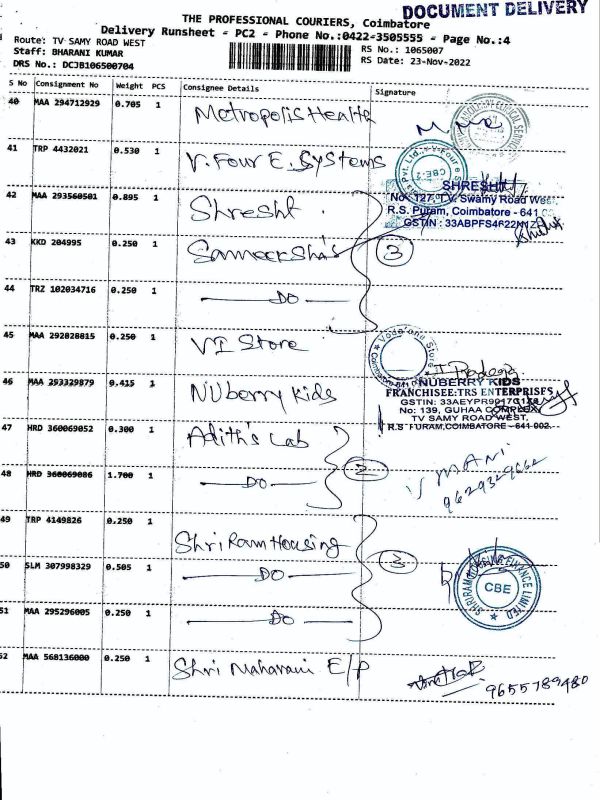 DOCUMENT DELIVERY
THE PROFESSIONAL COURIERS, Coimbatore
Delivery Runsheet - PC2 - Phone No.:0422-3505555 - Page No.:4
Route: TV SAMY ROAD WEST
Staff: BHARANI KUMAR
DRS No.: DCJB106500704
RS No.: 1065007
RS Date: 23-Nov-2022
S No Consignment No Weight PCS Consignee Details Signature
40 MAA 294712929 0.705 1 Metropolis Health
41 TRP 4432021 0.530 1 V. Four E. Systems
CBE-2
42 MAA 293560501 0.895 1 Shresht
SHRESHT
No. 127, T.V. Swamy Road West,
R.S. Puram, Coimbatore - 641
GSTIN : 33ABPFS4622N1Z
43 KKD 204995 0.250 1 Sameeksha's
3
44 TRZ 102034716 0.250 1 DO
45 MAA 292828815 0.250 1 VI Store
Vodafone Store
46 MAA 293329879 0.415 1 NUberry Kids
NUBERRY KIDS
FRANCHISEE:TRS ENTERPRISES
No: 139, GUHAA COMPLEX,
TV SAMY ROAD WEST,
R.S PURAM,COIMBATORE - 641 002.
47 HRD 360069052 0.300 1 Adith's Lab
2
V MANI
9629329662
48 HRD 360069086 1.700 1 DO
49 TRP 4149826 0.250 1 Shri Ram Housing
3
50 SLM 307998329 0.505 1 DO
SHRIRAM HOUSING FINANCE LIMITED
CBE
51 MAA 295296005 0.250 1 DO
52 MAA 568136000 0.250 1 Shri Maharani E/P
9655789480